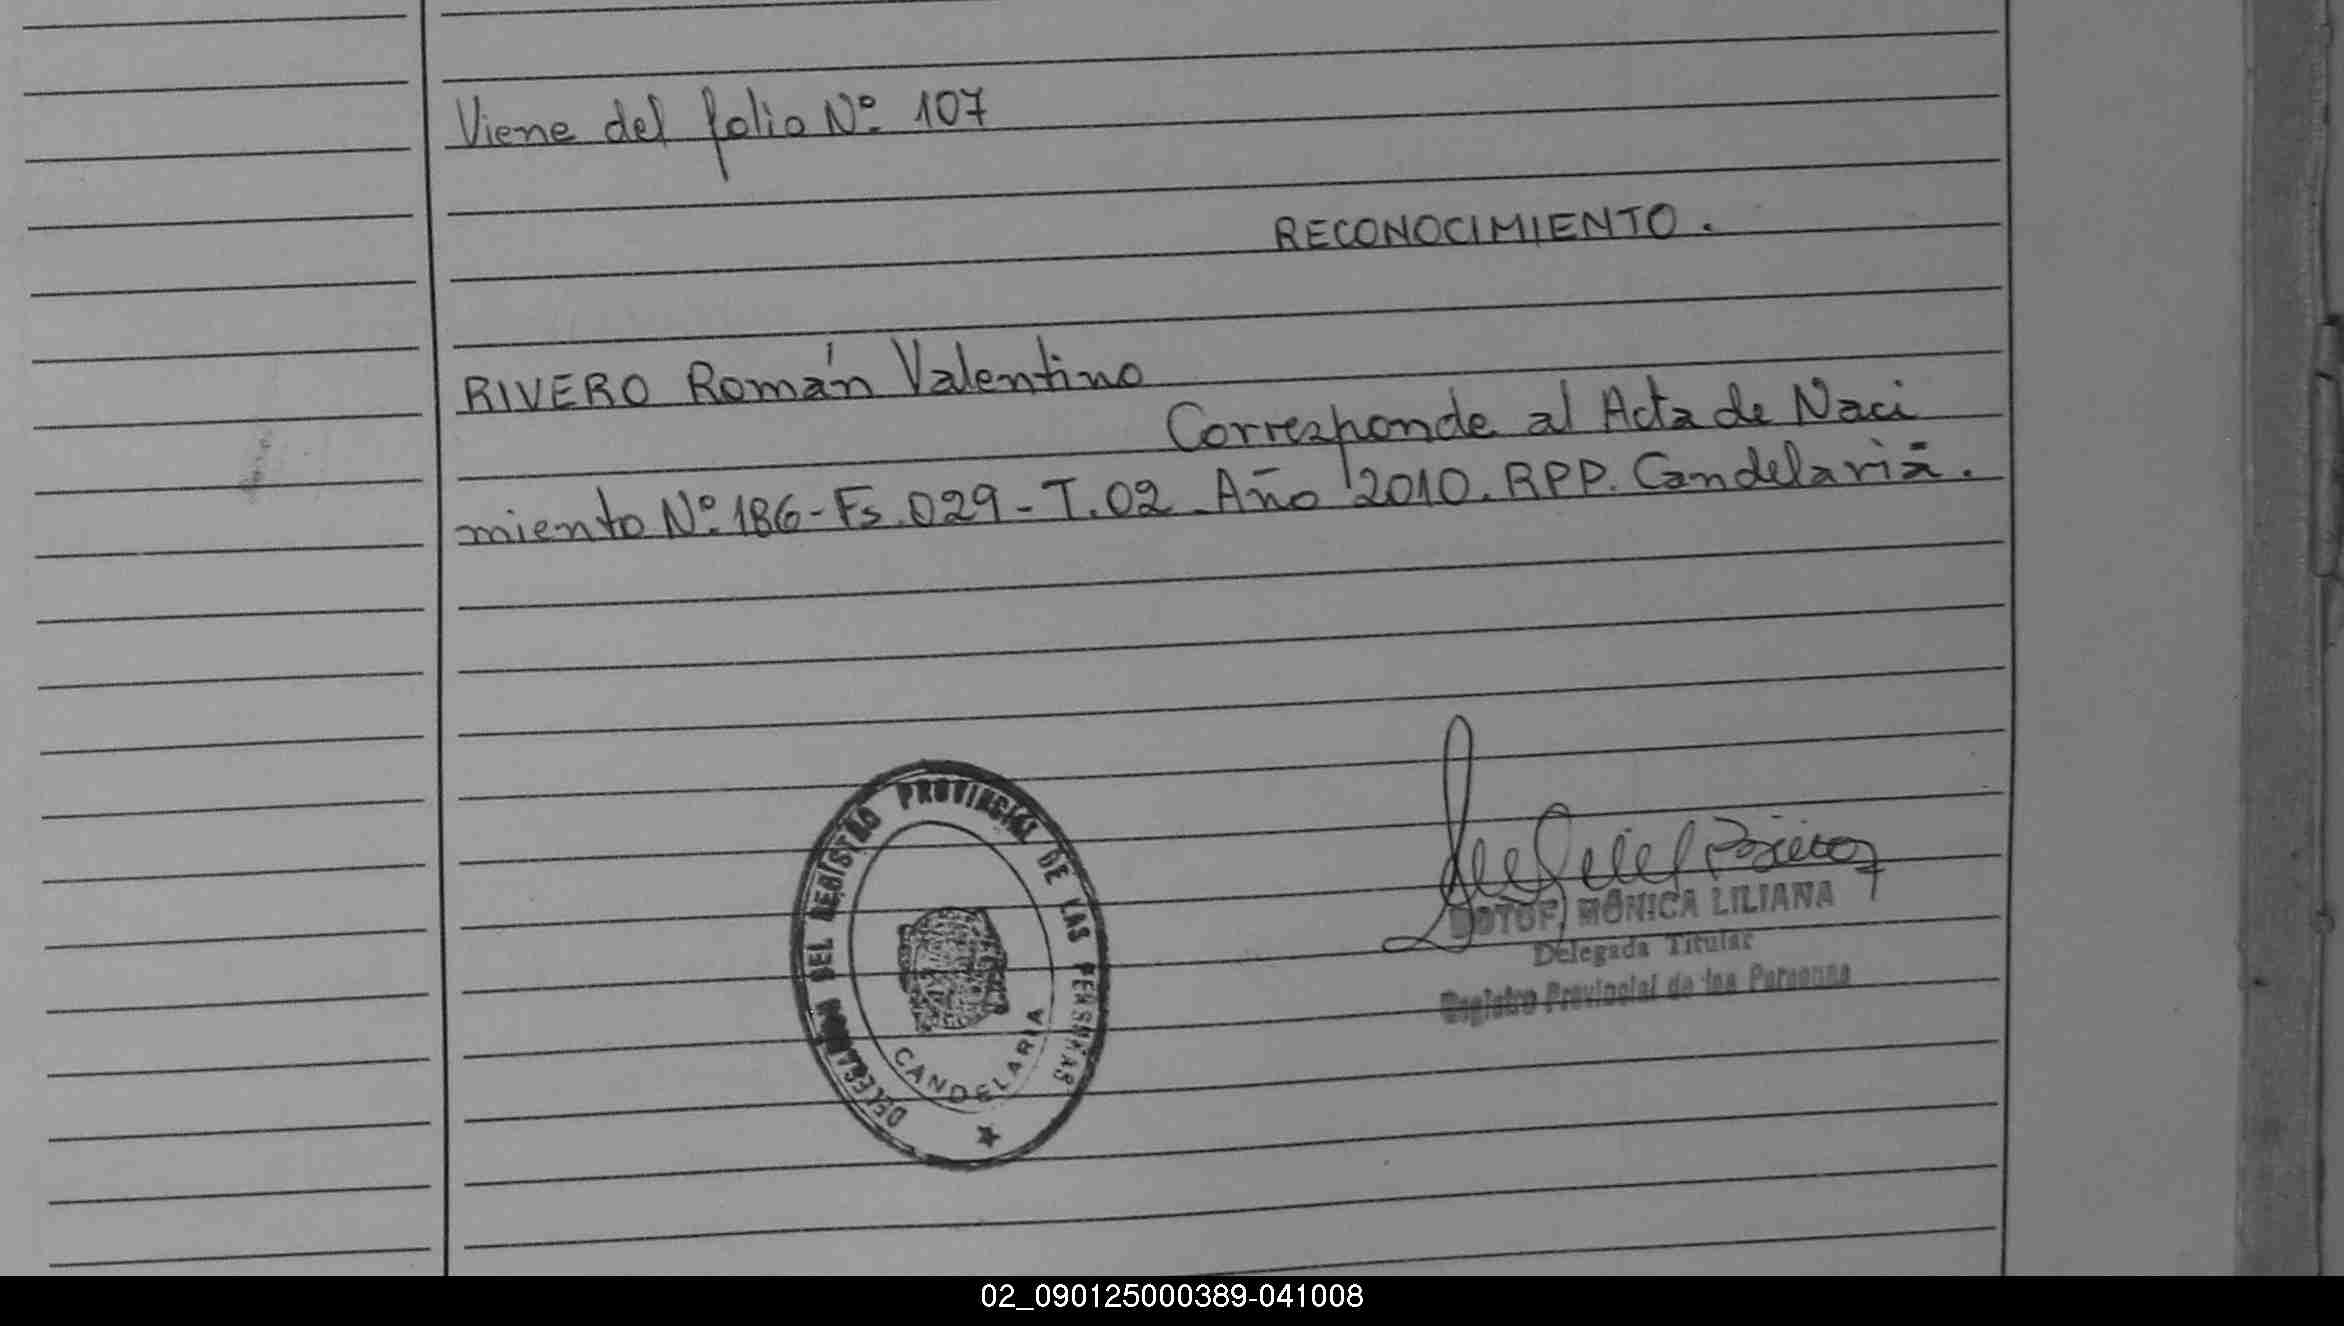 Viene del folio Nº 107
RECONOCIMIENTO.
RIVERO Román Valentino
Corresponde al Acta de Naci
miento Nº 186-Fs.029-T.02 Año 2010. RPP. Candelaria.
DELEGACIÓN DEL REGISTRO PROVINCIAL DE LAS PERSONAS
CANDELARIA
MÓNICA LILIANA
Delegada Titular
Registro Provincial de las Personas
02_090125000389-041008